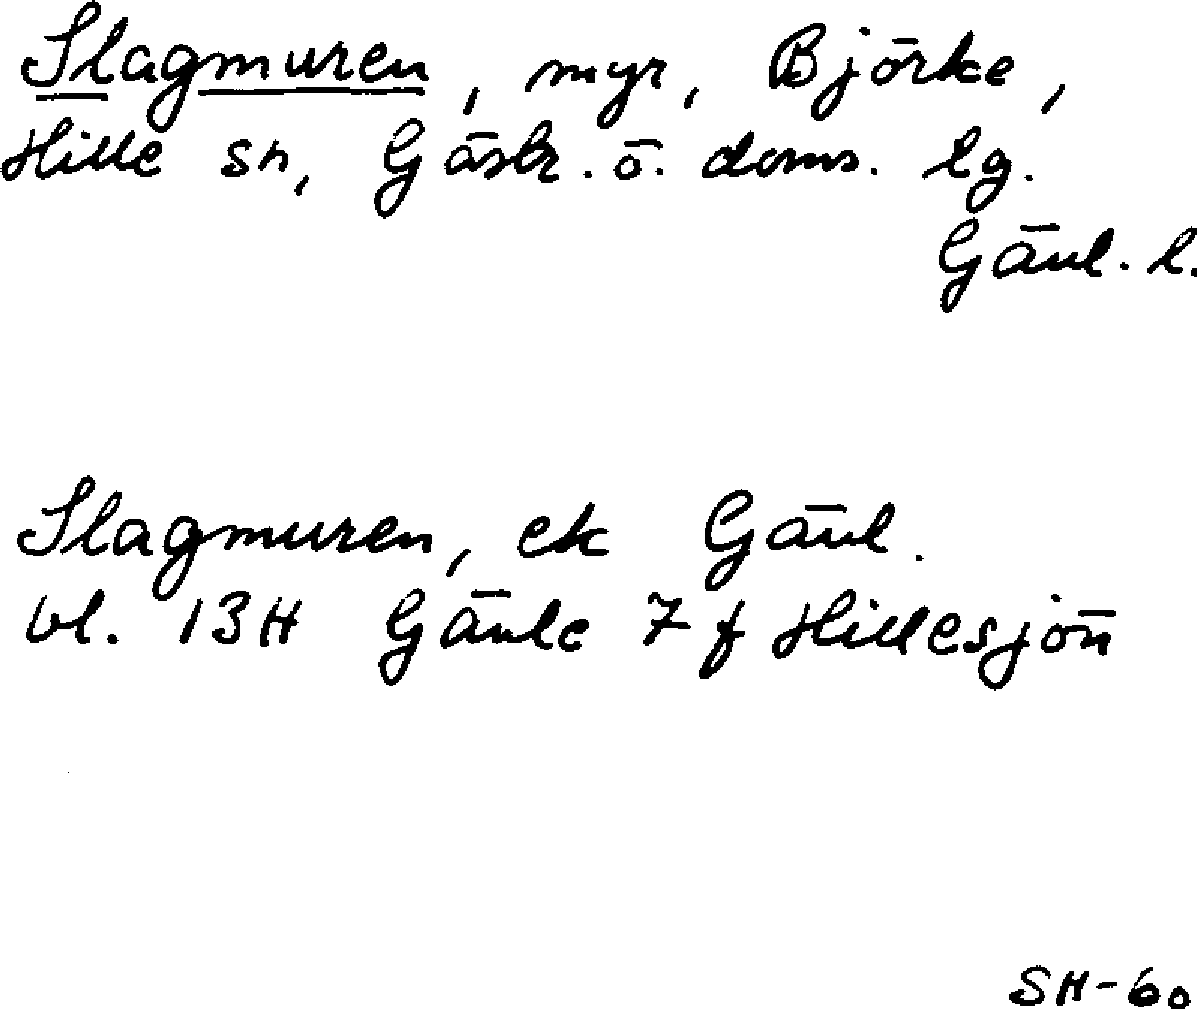 Slagmuren, myr, Björke,
Hille sn, Gästr. ö. doms. lg.
Gävl. l.
Slagmuren, ek Gävl.
bl. 13H Gävle 7 f Hillesjön
SH-60